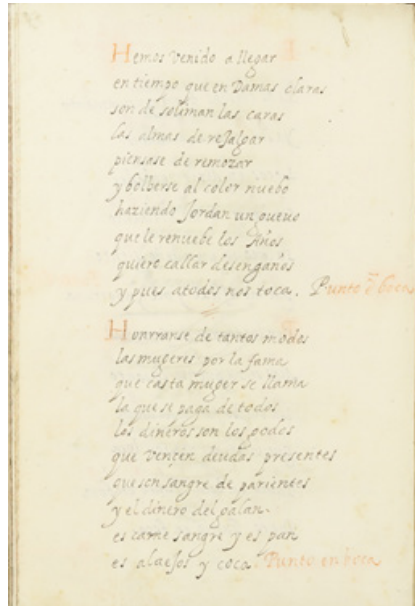 Hemos venido a llegar
en tiempo que en Damas claras
son de soliman las caras
las almas de rejalgar
piensase de remozar
y bolberse al color nuebo
haziendo Jordan un gueuo
que le renuebe los Años
quiero callar desengaños
y pues a todos nos toca. Punto ē boca
Honrranse de tantos modos
las mugeres por la fama
que casta muger se llama
la que se paga de todos
los dineros son los godos
que vençen deudas presentes
que son sangre de parientes
y el dinero del galan
es carne sangre y es pan
es y coca. Punto en boca